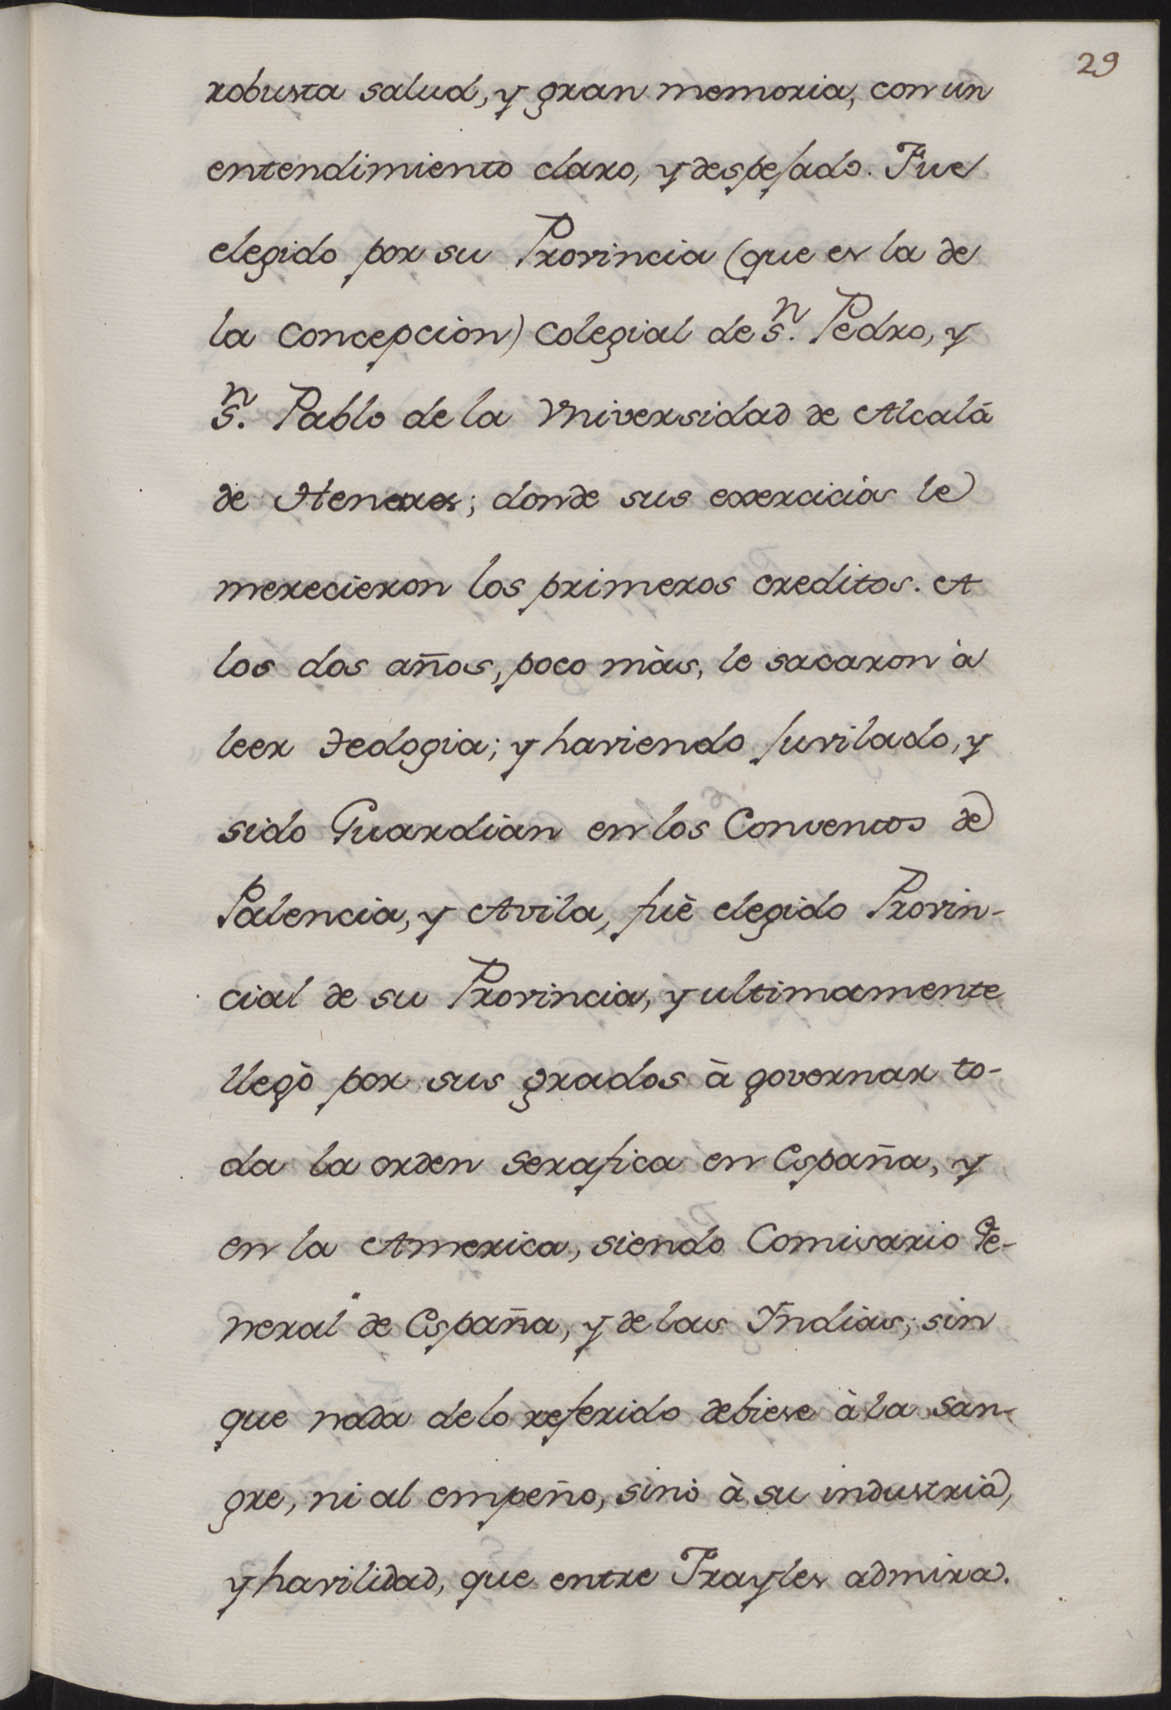 29
robusta salud, y gran memoria, con un
entendimiento claro, y despejado. Fue
elegido por su Provincia (que es la de
la Concepcion) Colegial de Sⁿ. Pedro, y
Sⁿ. Pablo de la Vniversidad de Alcalà
de Henares; donde sus exercicios le
merecieron los primeros creditos. A
los dos años, poco màs, le sacaron à
leer Teologia; y haviendo juvilado, y
sido Guardian en los Conventos de
Palencia, y Avila, fuè elegido Provin-
cial de su Provincia, y ultimamente
llegò por sus grados à governar to-
da la orden serafica en España, y
en la America, siendo Comisario Ge-
neral de España, y de las Yndias; sin
que nada de lo referido debiese à la san-
gre, ni al empeño, sinò à su industria,
y havilidad, que entre Frayles admira.